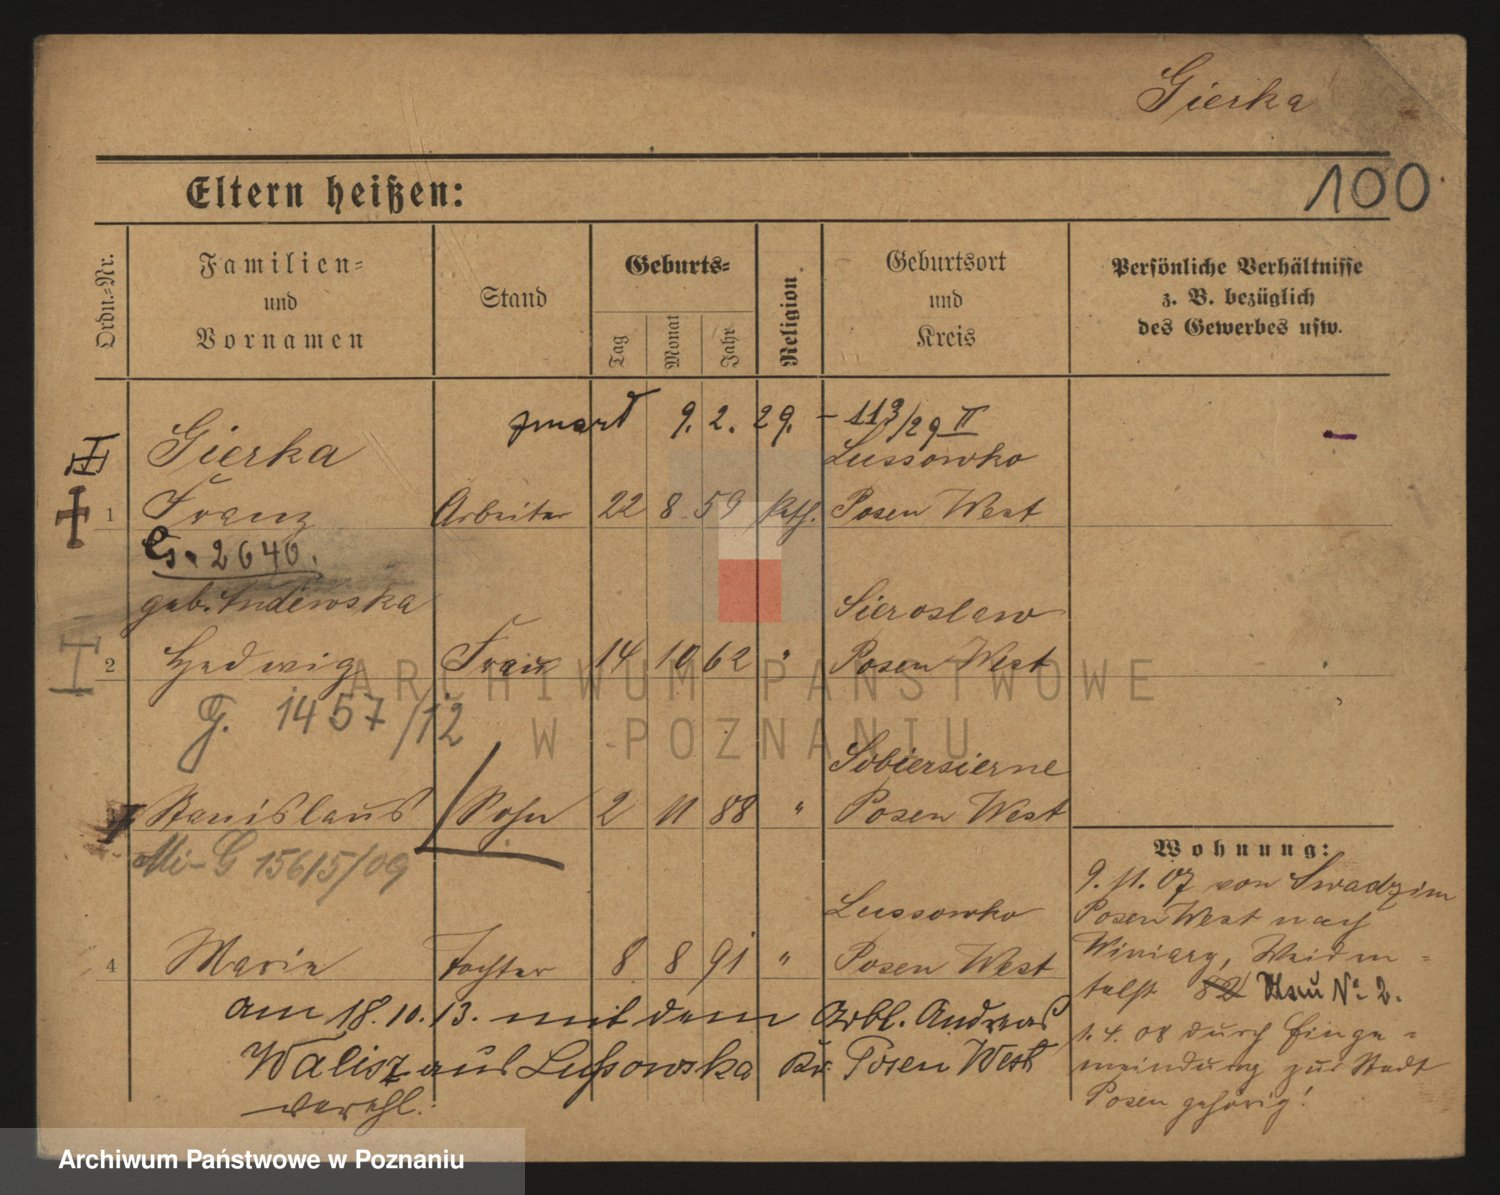 Gierka
Eltern heißen:
100
Ordn.-Nr.
Familien-
und
Vornamen
Stand
Geburts-
Tag
Monat
Jahr
Religion
Geburtsort
und
Kreis
Persönliche Verhältnisse
z. B. bezüglich
des Gewerbes usw.
zmarł 9. 2. 29. – 113/29 II
Gierka Lussowko
1 Franz Arbeiter 22 8 59 kath. Posen West
2640.
geb. Sieroslaw
2 Hedwig Frau 14 10 62 " Posen West
G. 1457/12
Sobiersierne
Stanislaus Sohn 2 11 88 " Posen West
G 1561/5/09
Wohnung:
9. 11. 07 von Swadzim
Posen West nach
Winiary,
Lussowko
4 Marie Tochter 8 8 91 " Posen West
82 No. 2.
am 18. 10. 13. mit dem Arbt. Andreas
Walisz aus Lussowska Kr. Posen West
verehl.
1. 4. 08 durch Einge-
meindung zur Stadt
Posen gehörig!
ARCHIWUM PAŃSTWOWE
W POZNANIU
Archiwum Państwowe w Poznaniu